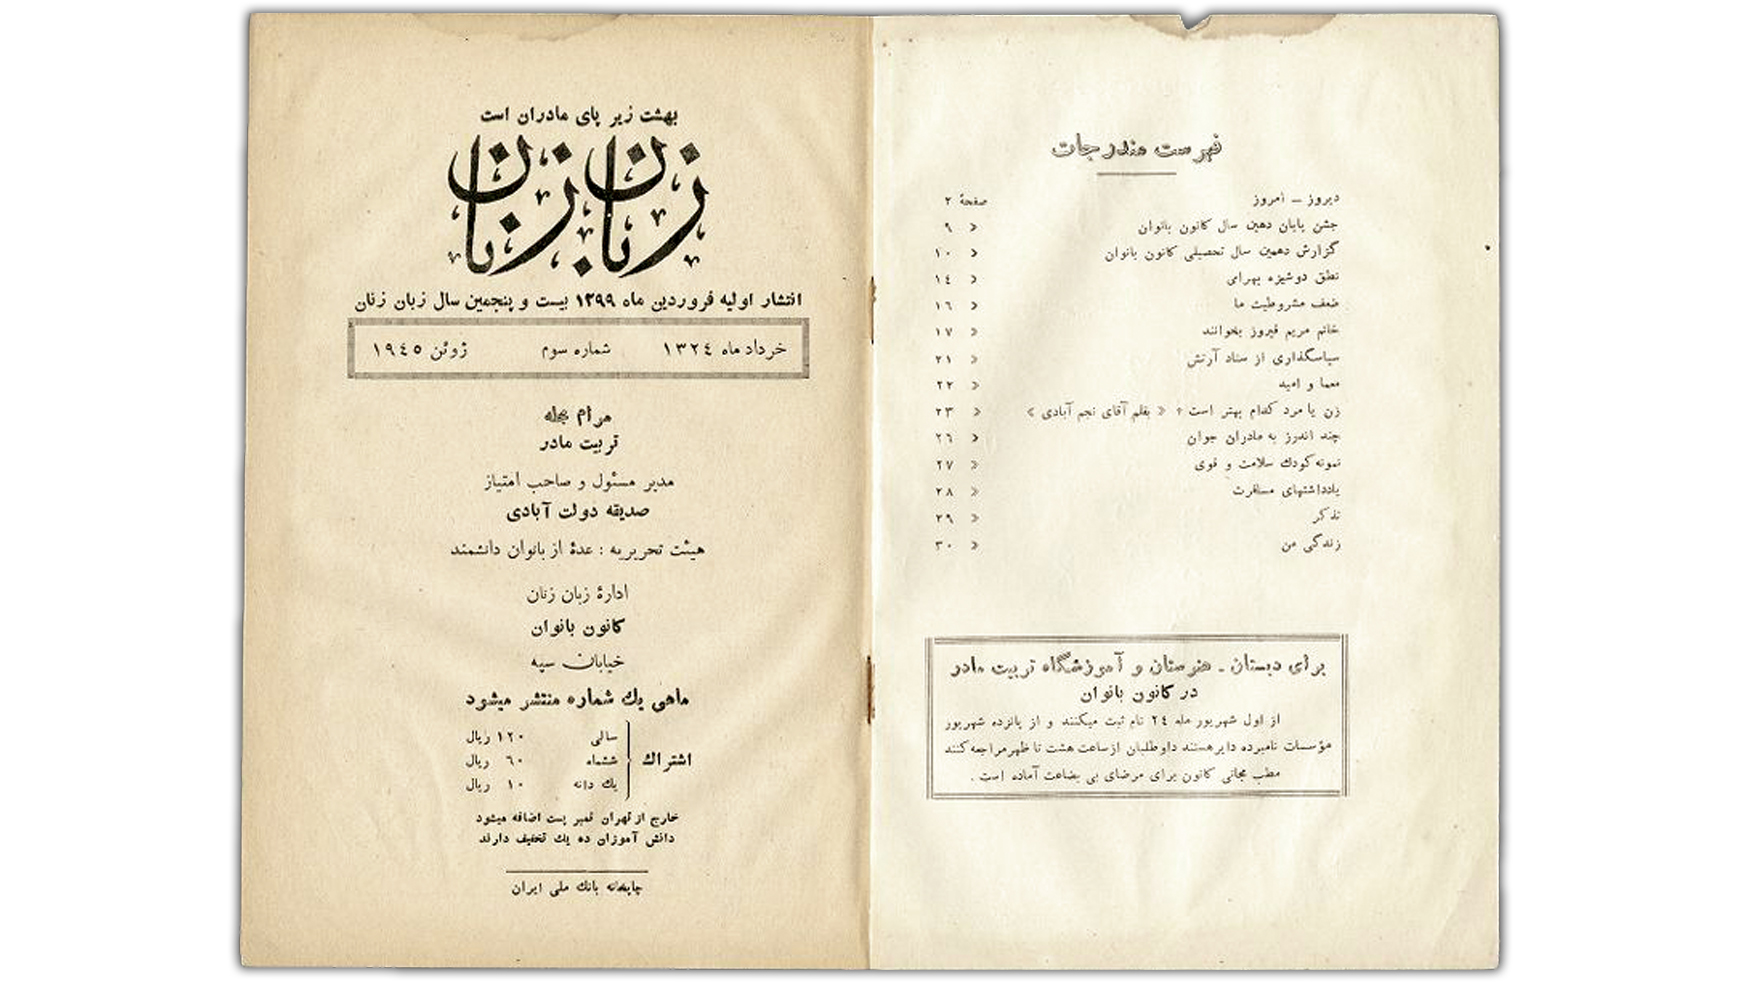 بهشت زیر پای مادران است
زبان زنان
انتشار اولیه فروردین ماه ۱۲۹۹ بیست و پنجمین سال زبان زنان
خرداد ماه ۱۳۲٤ شماره سوم ژوئن ۱۹٤٥
مرام مجله
تربیت مادر
مدیر مسئول و صاحب امتیاز
صدیقه دولت آبادی
هیئت تحریریه : عدهٔ از بانوان دانشمند
ادارهٔ زبان زنان
کانون بانوان
خیابان سپه
ماهی یك شماره منتشر میشود
اشتراك
سالی ۱۲۰ ریال
ششماه ٦۰ ریال
یك دانه ۱۰ ریال
خارج از تهران تمبر پست اضافه میشود
دانش آموزان ده یك تخفیف دارند
چاپخانه بانك ملی ایران
فهرست مندرجات
دیروز ـ امروز صفحهٔ ۲
جشن پایان دهمین سال کانون بانوان » ۹
گزارش دهمین سال تحصیلی کانون بانوان » ۱۰
نطق دوشیزه بهرامی » ۱٤
ضعف مشروطیت ما » ۱٦
خانم مریم فیروز بخوانند » ۱۷
سپاسگذاری از ستاد آرتش » ۲۱
معما و امید » ۲۲
زن یا مرد کدام بهتر است ؟ « بقلم آقای نجم آبادی » » ۲۳
چند اندرز به مادران جوان » ۲٦
نمونه کودك سلامت و قوی » ۲۷
یادداشتهای مسافرت » ۲۸
تذکر » ۲۹
زندگی من » ۳۰
برای دبستان ـ هنرستان و آموزشگاه تربیت مادر
در کانون بانوان
از اول شهریور ماه ۲٤ نام ثبت میکنند و از پانزده شهریور
مؤسسات نامبرده دایر هستند داوطلبان از ساعت هشت تا ظهر مراجعه کنند
مطب مجانی کانون برای مرضای بی بضاعت آماده است .